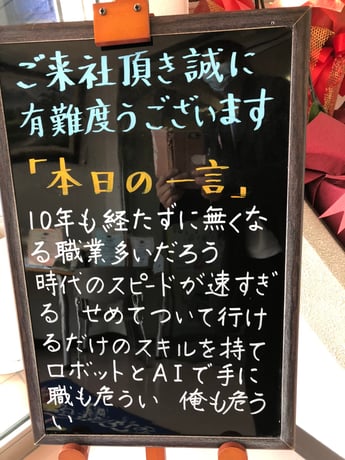 ご来社頂き誠に
有難度うございます
「本日の一言」
10年も経たずに無くな
る職業多いだろう
時代のスピードが速すぎ
る　せめてついて行け
るだけのスキルを持て
ロボットとAIで手に
職も危うい　俺も危う
い